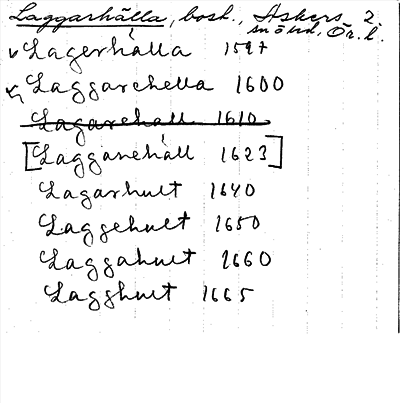 Laggarhälla, bost., Askers 2.
sn ö hd, Ör. l.
Lagerhälla 1597
Laggarehella 1600
Lagarehall 1610
[Lagganehäll 1623]
Lagarhult 1640
Laggehult 1650
Laggahult 1660
Lagghult 1665